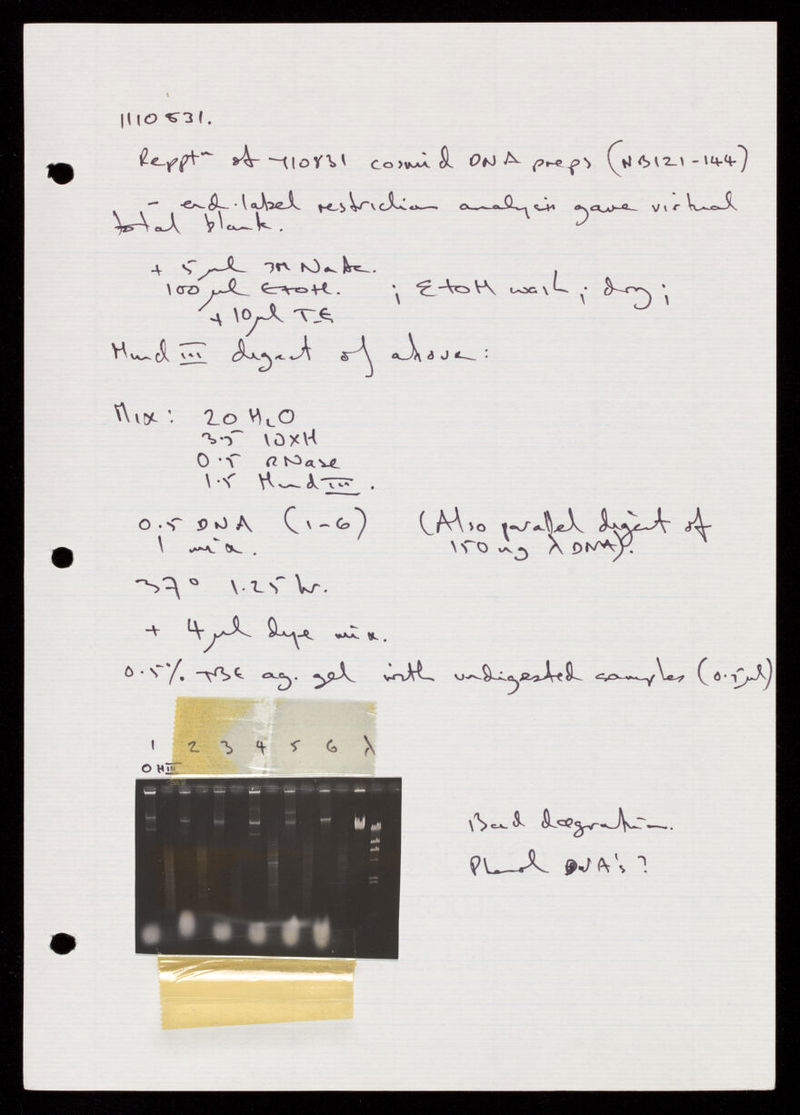 1110831.
Reppt⁠ⁿ of 710831 cosmid DNA preps (NB121-144)
- end-label restriction analysis gave virtual
total blank.
+ 5μl 3M NaAc.
100μl EtOH. ; EtOH wash ; dry ;
+ 10μl TE
Hind III digest of above:
Mix: 20 H2O
3.5 10xH
0.5 RNase
1.5 Hind III.
0.5 DNA (1-6) (Also parallel digest of
1 mix. 150 ng λ DNA).
37° 1.25 hr.
+ 4μl dye mix.
0.5% TBE ag. gel with undigested samples (0.5μl)
1 2 3 4 5 6 λ
O HIII
Bad degration.
Phenol DNA's?